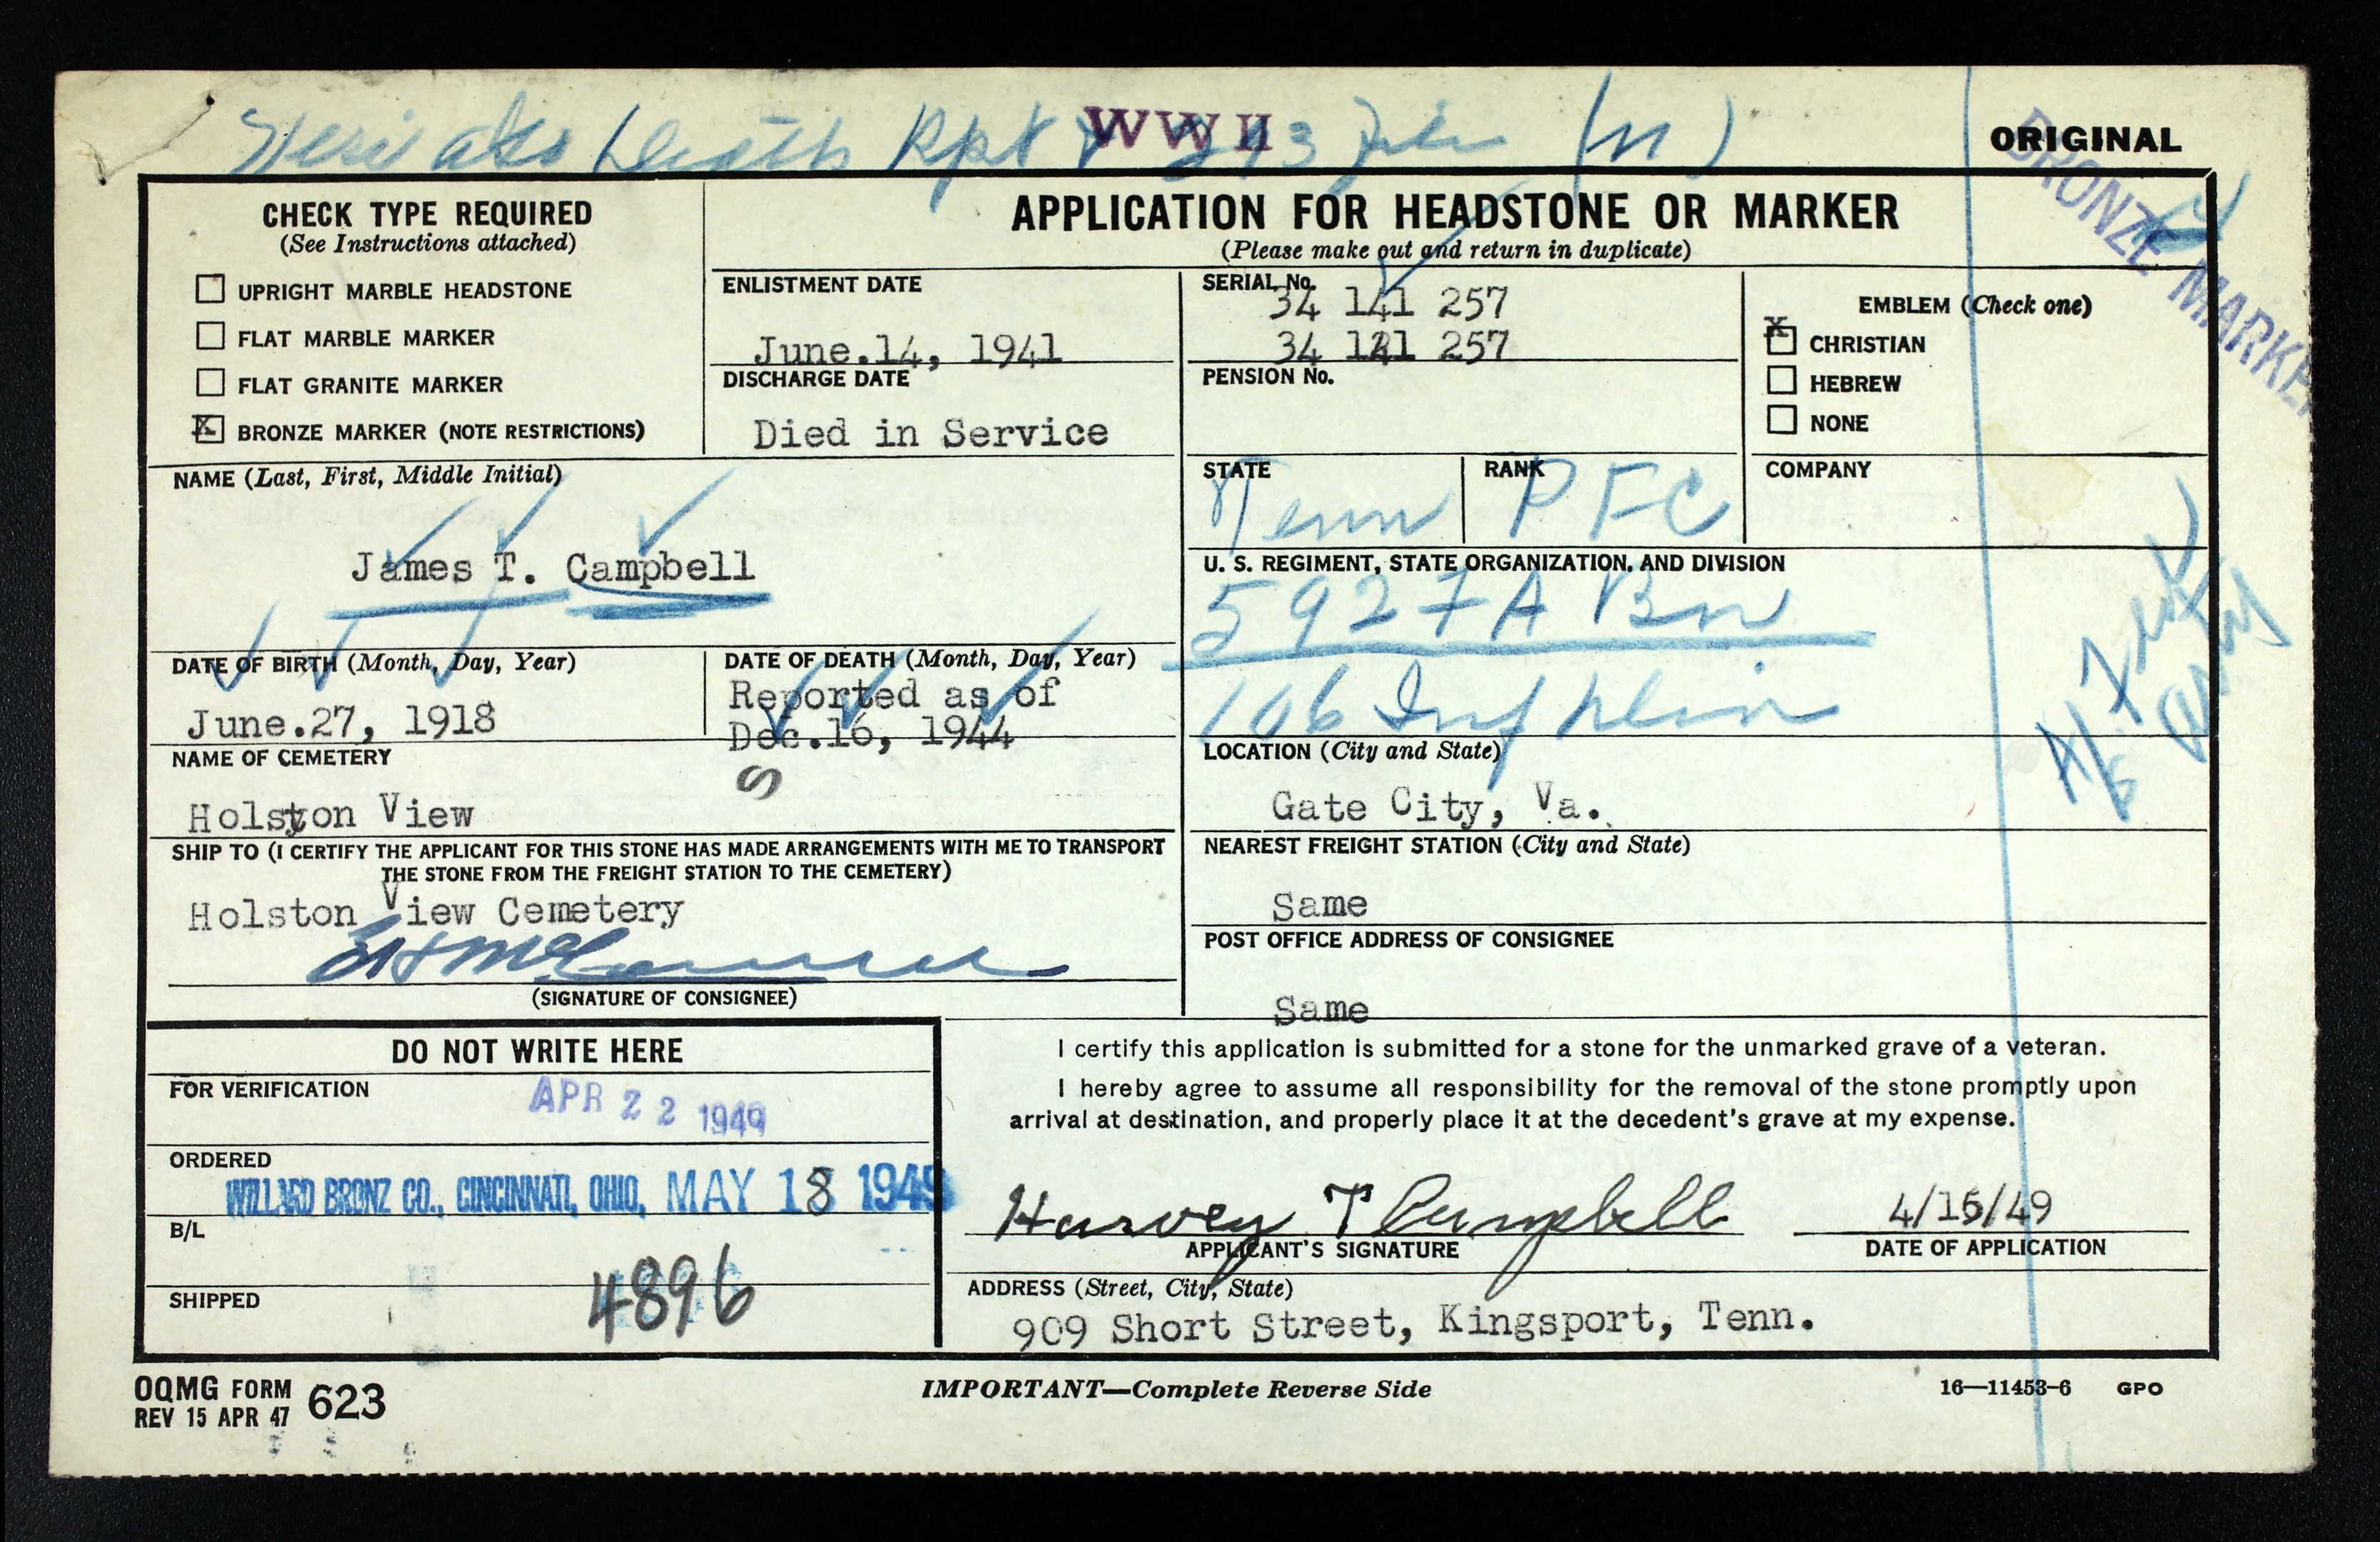 WW II
ORIGINAL
BRONZE MARKER
CHECK TYPE REQUIRED
(See Instructions attached)
UPRIGHT MARBLE HEADSTONE
FLAT MARBLE MARKER
FLAT GRANITE MARKER
X BRONZE MARKER (NOTE RESTRICTIONS)
APPLICATION FOR HEADSTONE OR MARKER
(Please make out and return in duplicate)
ENLISTMENT DATE
June.14, 1941
DISCHARGE DATE
Died in Service
SERIAL No.
34 141 257
34 141 257
PENSION No.
EMBLEM (Check one)
X CHRISTIAN
HEBREW
NONE
NAME (Last, First, Middle Initial)
James T. Campbell
STATE
Tenn
RANK
PFC
COMPANY
U. S. REGIMENT, STATE ORGANIZATION, AND DIVISION
592 FA Bn
106 Inf Divin
DATE OF BIRTH (Month, Day, Year)
June.27, 1918
DATE OF DEATH (Month, Day, Year)
Reported as of
Dec.16, 1944
NAME OF CEMETERY
Holston View
LOCATION (City and State)
Gate City, Va.
SHIP TO (I CERTIFY THE APPLICANT FOR THIS STONE HAS MADE ARRANGEMENTS WITH ME TO TRANSPORT
THE STONE FROM THE FREIGHT STATION TO THE CEMETERY)
Holston View Cemetery
(SIGNATURE OF CONSIGNEE)
NEAREST FREIGHT STATION (City and State)
Same
POST OFFICE ADDRESS OF CONSIGNEE
Same
DO NOT WRITE HERE
FOR VERIFICATION
APR 22 1949
ORDERED
WILLARD BRONZ CO., CINCINNATI, OHIO, MAY 18 1949
B/L
SHIPPED
4896
I certify this application is submitted for a stone for the unmarked grave of a veteran.
I hereby agree to assume all responsibility for the removal of the stone promptly upon
arrival at destination, and properly place it at the decedent's grave at my expense.
Harvey T Campbell
APPLICANT'S SIGNATURE
4/15/49
DATE OF APPLICATION
ADDRESS (Street, City, State)
909 Short Street, Kingsport, Tenn.
OQMG FORM 623
REV 15 APR 47
IMPORTANT—Complete Reverse Side
16—11453-6 GPO